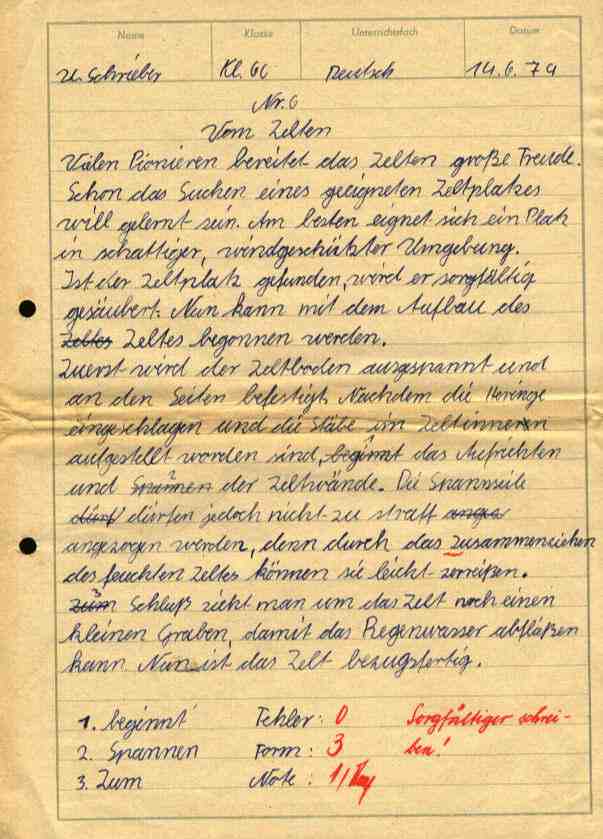 Name Klasse Unterrichtsfach Datum
U. Schrieber Kl. 6c Deutsch 14.6.79
Nr. 6
Vom Zelten
Vielen Pionieren bereitet das Zelten große Freude.
Schon das Suchen eines geeigneten Zeltplatzes
will gelernt sein. Am besten eignet sich ein Platz
in schattiger, windgeschützter Umgebung.
Ist der Zeltplatz gefunden, wird er sorgfältig
gesäubert. Nun kann mit dem Aufbau des
Zeltes Zeltes begonnen werden.
Zuerst wird der Zeltboden ausgespannt und
an den Seiten befestigt. Nachdem die Heringe
eingeschlagen und die Stäbe im Zeltinnern
aufgestellt worden sind, beginnt das Aufrichten
und Spannen der Zeltwände. Die Spannseile
dürf dürfen jedoch nicht zu straff ange
angezogen werden, denn durch das Zusammenziehen
des feuchten Zeltes können sie leicht zerreißen.
Zum Schluß zieht man um das Zelt noch einen
kleinen Graben, damit das Regenwasser abfließen
kann. Nun ist das Zelt bezugsfertig.
1. beginnt Fehler: 0 Sorgfältiger schrei-
2. Spannen Form: 3 ben!
3. Zum Note: 1/